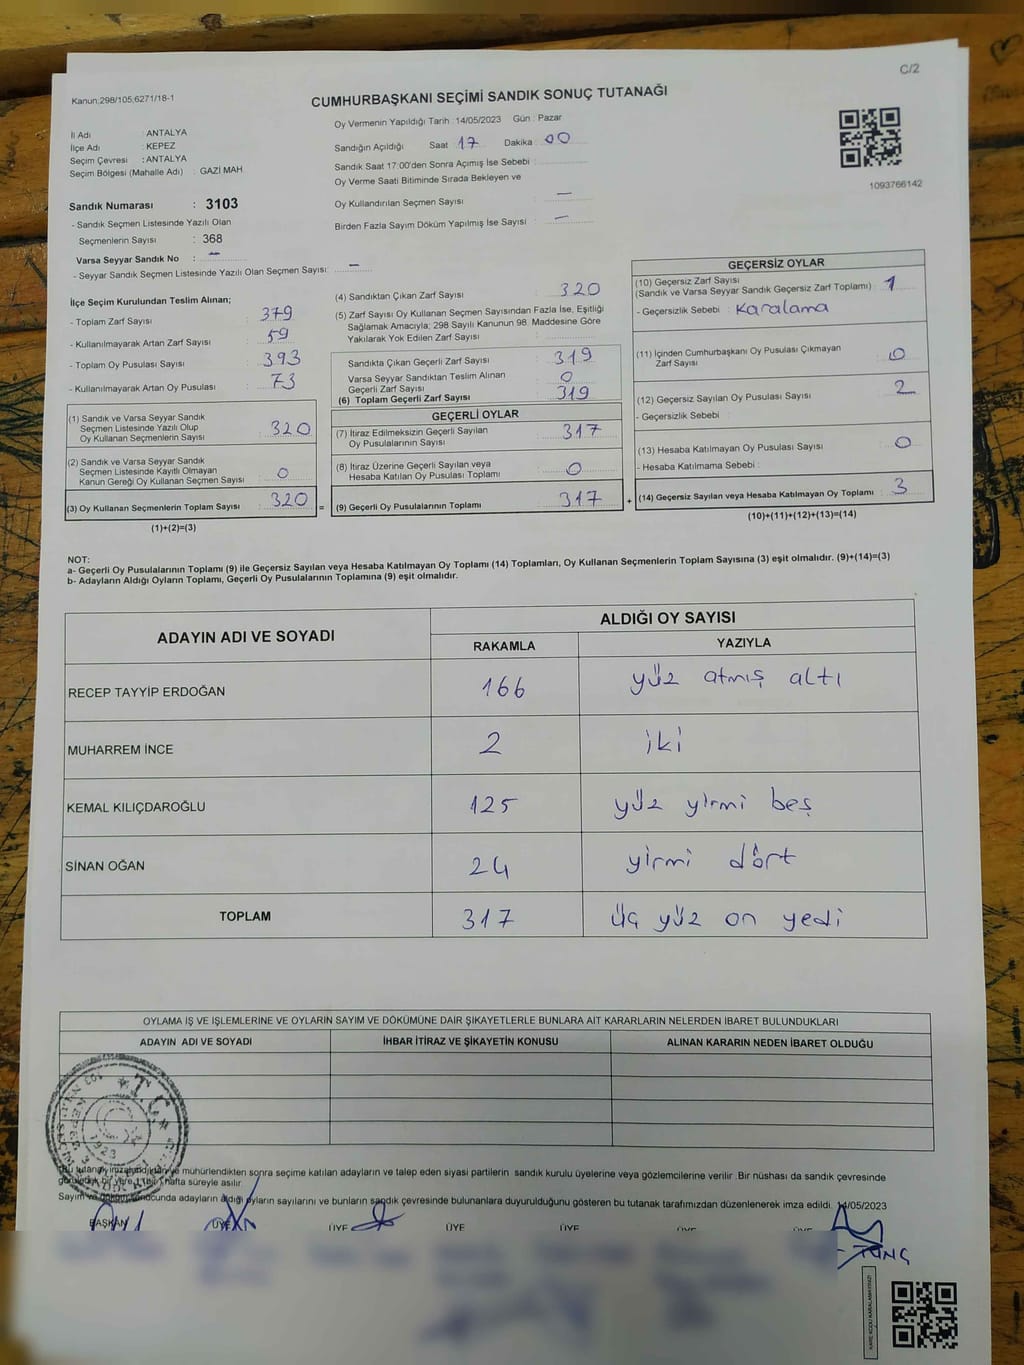 C/2
Kanun:298/105;6271/18-1
CUMHURBAŞKANI SEÇİMİ SANDIK SONUÇ TUTANAĞI
İl Adı : ANTALYA
İlçe Adı : KEPEZ
Seçim Çevresi : ANTALYA
Seçim Bölgesi (Mahalle Adı) : GAZİ MAH
Oy Vermenin Yapıldığı Tarih : 14/05/2023 Gün : Pazar
Sandığın Açıldığı Saat 17 Dakika 00
Sandık Saat 17:00'den Sonra Açımış İse Sebebi :
Oy Verme Saati Bitiminde Sırada Bekleyen ve
Oy Kullandırılan Seçmen Sayısı : —
Birden Fazla Sayım Döküm Yapılmış İse Sayısı : —
1093766142
Sandık Numarası : 3103
- Sandık Seçmen Listesinde Yazılı Olan
Seçmenlerin Sayısı : 368
Varsa Seyyar Sandık No : —
- Seyyar Sandık Seçmen Listesinde Yazılı Olan Seçmen Sayısı: —
İlçe Seçim Kurulundan Teslim Alınan;
- Toplam Zarf Sayısı : 379
- Kullanılmayarak Artan Zarf Sayısı : 59
- Toplam Oy Pusulası Sayısı : 393
- Kullanılmayarak Artan Oy Pusulası : 73
(1) Sandık ve Varsa Seyyar Sandık
Seçmen Listesinde Yazılı Olup
Oy Kullanan Seçmenlerin Sayısı : 320
(2) Sandık ve Varsa Seyyar Sandık
Seçmen Listesinde Kayıtlı Olmayan
Kanun Gereği Oy Kullanan Seçmen Sayısı : 0
(3) Oy Kullanan Seçmenlerin Toplam Sayısı : 320 =
(1)+(2)=(3)
(4) Sandıktan Çıkan Zarf Sayısı : 320
(5) Zarf Sayısı Oy Kullanan Seçmen Sayısından Fazla İse, Eşitliği
Sağlamak Amacıyla; 298 Sayılı Kanunun 98. Maddesine Göre
Yakılarak Yok Edilen Zarf Sayısı :
Sandıkta Çıkan Geçerli Zarf Sayısı : 319
Varsa Seyyar Sandıktan Teslim Alınan
Geçerli Zarf Sayısı : 0
(6) Toplam Geçerli Zarf Sayısı : 319
GEÇERLİ OYLAR
(7) İtiraz Edilmeksizin Geçerli Sayılan
Oy Pusulalarının Sayısı : 317
(8) İtiraz Üzerine Geçerli Sayılan veya
Hesaba Katılan Oy Pusulası Toplamı : 0
(9) Geçerli Oy Pusulalarının Toplamı : 317 +
GEÇERSİZ OYLAR
(10) Geçersiz Zarf Sayısı
(Sandık ve Varsa Seyyar Sandık Geçersiz Zarf Toplamı) : 1
- Geçersizlik Sebebi : Karalama
(11) İçinden Cumhurbaşkanı Oy Pusulası Çıkmayan
Zarf Sayısı : 0
(12) Geçersiz Sayılan Oy Pusulası Sayısı : 2
- Geçersizlik Sebebi :
(13) Hesaba Katılmayan Oy Pusulası Sayısı : 0
- Hesaba Katılmama Sebebi :
(14) Geçersiz Sayılan veya Hesaba Katılmayan Oy Toplamı : 3
(10)+(11)+(12)+(13)=(14)
NOT:
a- Geçerli Oy Pusulalarının Toplamı (9) ile Geçersiz Sayılan veya Hesaba Katılmayan Oy Toplamı (14) Toplamları, Oy Kullanan Seçmenlerin Toplam Sayısına (3) eşit olmalıdır. (9)+(14)=(3)
b- Adayların Aldığı Oyların Toplamı, Geçerli Oy Pusulalarının Toplamına (9) eşit olmalıdır.
ADAYIN ADI VE SOYADI ALDIĞI OY SAYISI
RAKAMLA YAZIYLA
RECEP TAYYİP ERDOĞAN 166 yüz atmış altı
MUHARREM İNCE 2 iki
KEMAL KILIÇDAROĞLU 125 yüz yirmi beş
SİNAN OĞAN 24 yirmi dört
TOPLAM 317 üç yüz on yedi
OYLAMA İŞ VE İŞLEMLERİNE VE OYLARIN SAYIM VE DÖKÜMÜNE DAİR ŞİKAYETLERLE BUNLARA AİT KARARLARIN NELERDEN İBARET BULUNDUKLARI
ADAYIN ADI VE SOYADI İHBAR İTİRAZ VE ŞİKAYETİN KONUSU ALINAN KARARIN NEDEN İBARET OLDUĞU
T.C.
1923
Bu tutanak imzalandıktan ve mühürlendikten sonra seçime katılan adayların ve talep eden siyasi partilerin sandık kurulu üyelerine veya gözlemcilerine verilir. Bir nüshası da sandık çevresinde
görülebilir bir yere 1 (bir) hafta süreyle asılır.
Sayım ve döküm sonucunda adayların aldığı oyların sayılarını ve bunların sandık çevresinde bulunanlara duyurulduğunu gösteren bu tutanak tarafımızdan düzenlenerek imza edildi. 14/05/2023
BAŞKAN ÜYE ÜYE ÜYE ÜYE ÜYE ÜYE
TUNÇ
KARE KODU KARALAMAYINIZ!